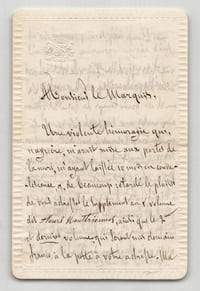 Monsieur le Marquis,
Une violente hémorragie qui,
naguère, m'avait mise aux portes de
la mort, m'ayant laissée 10 mois en conva-
lescence, a de beaucoup retardé le plaisir
de vous adresser le supplément au 1er volume
des Fleurs, ainsi que le 2e
et dernier volume, qui seront mis demain
franco, à la poste à votre adresse.